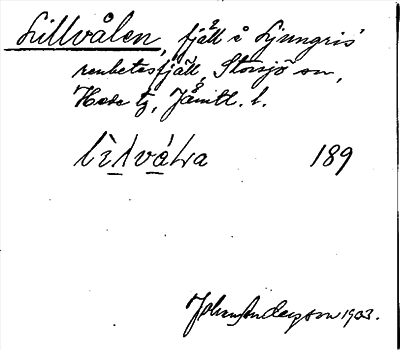 Lillvålen, fjäll å Ljungris
renbetesfjäll, Storsjö sn,
Hede tg, Jämtl. l.
189
Johan Anderson 1903.